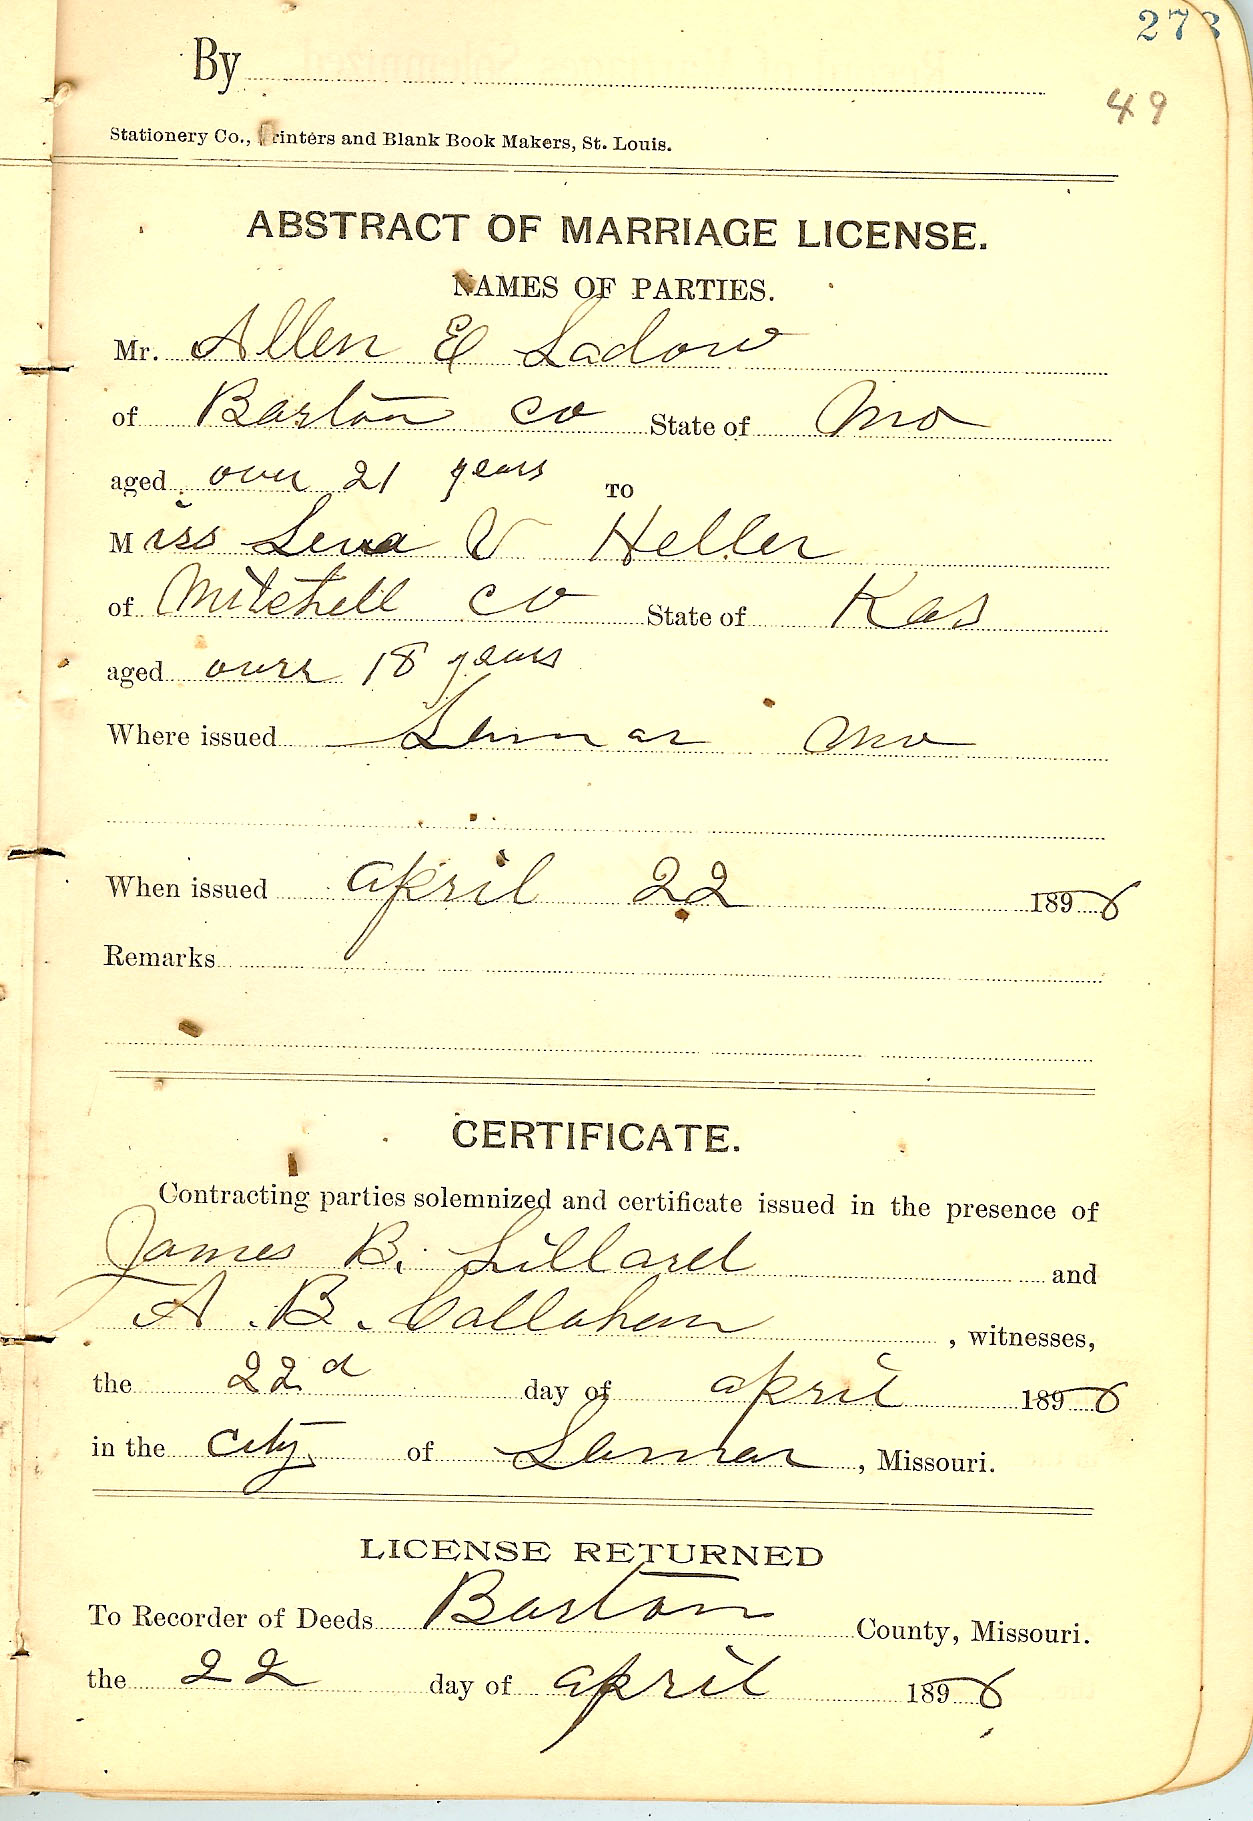 273
By
49
Stationery Co., Printers and Blank Book Makers, St. Louis.
ABSTRACT OF MARRIAGE LICENSE.
NAMES OF PARTIES.
Mr. Allen E Ladow
of Barton Co State of Mo
aged over 21 years
TO
Miss Lena V Heller
of Mitchell Co State of Kas
aged over 18 years
Where issued Lamar Mo
When issued april 22 1898
Remarks
CERTIFICATE.
Contracting parties solemnized and certificate issued in the presence of
James B. Lillard and
A. B. Callaham, witnesses,
the 22d day of april 1898
in the City of Lamar, Missouri.
LICENSE RETURNED
To Recorder of Deeds Barton County, Missouri.
the 22 day of april 1898